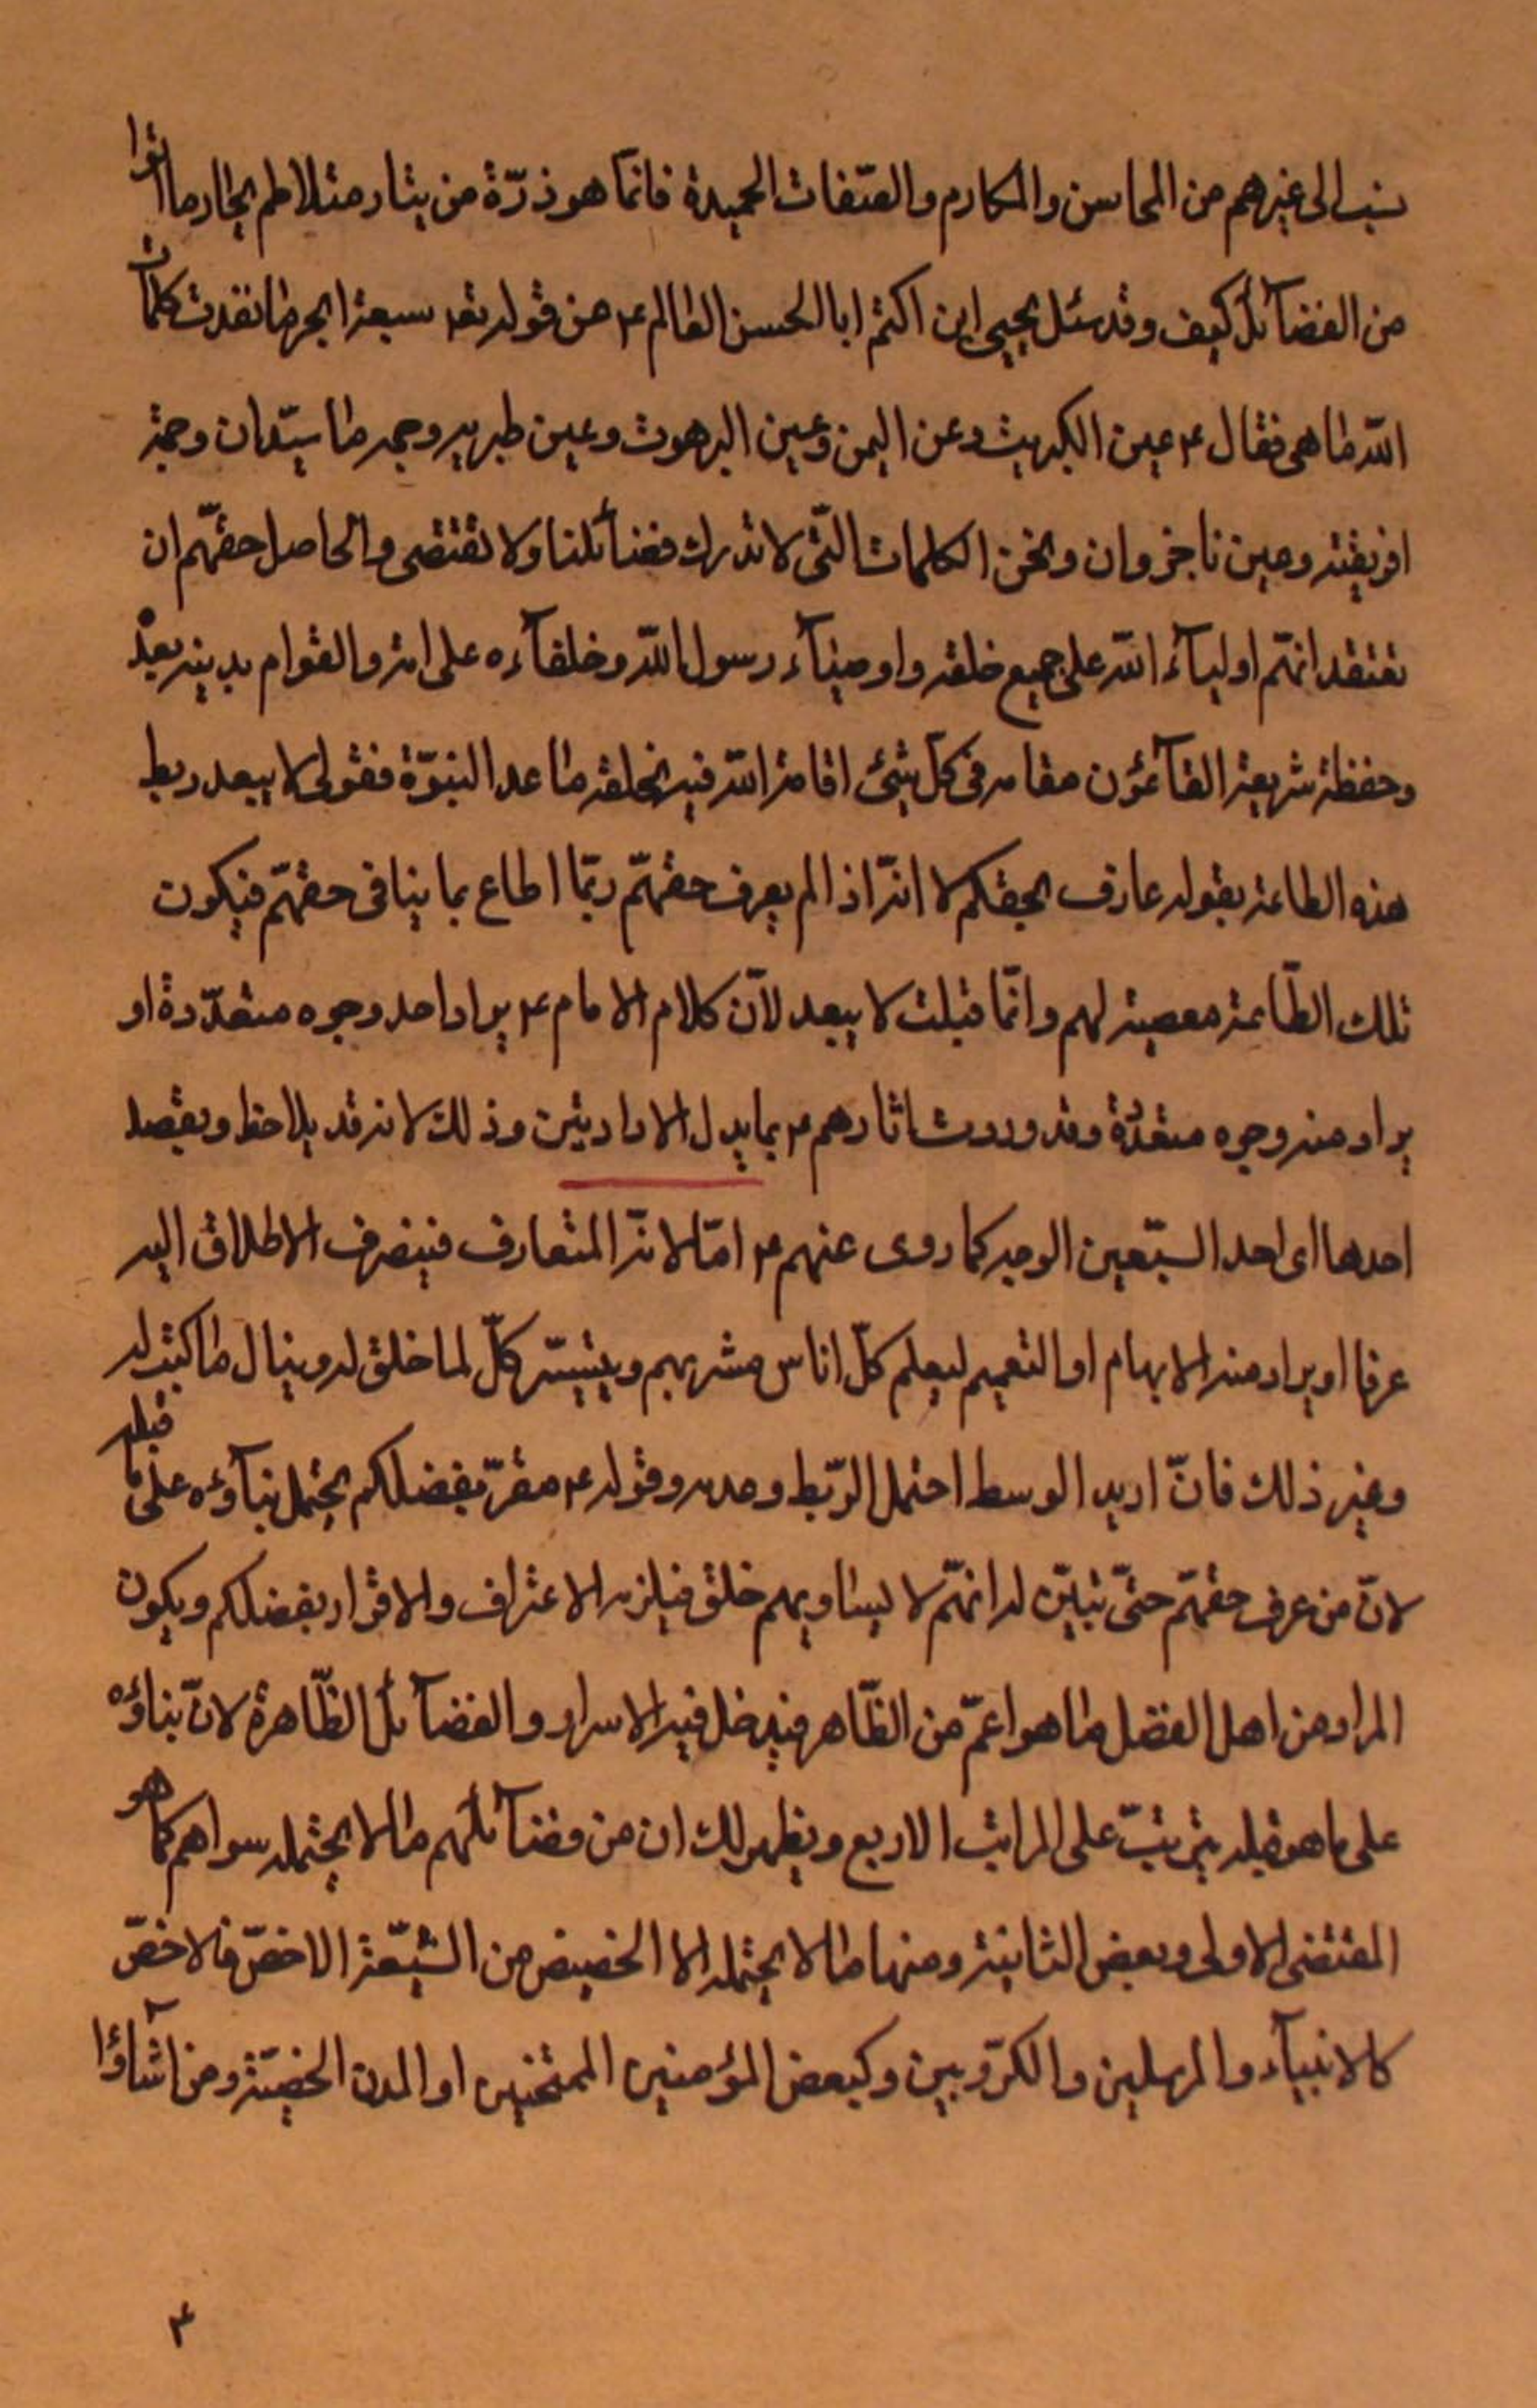 ينسب الى غيرهم من المحاسن والمكارم والصّفات الحميدة فانمّا هو ذرّة من تيار متلاطم بحار ما اتوا
من الفضآئل كيف وقد سئل يحيى ابن اكثم ابا الحسن العالم ع عن قوله تع سبعة ابحر ما نفدت كلمات
اللّه ما هى فقال ع عين الكبريت وعين اليمن وعين البرهوت وعين طبريه وجمه ماسيّدان وجمة
افريقية وعين ناجروان ونحن الكلمات التّى لا تدرك فضآئلنا ولا تقتضى والحاصل حقّهم ان
تعتقد انهّم اوليآء اللّه على جميع خلقه واوصيآء رسول اللّه وخلفآءه على امته والقوام بدينه بعده
وحفظة شريعة القآئمون مقامه فى كلّ شئ اقامه اللّه فيه لخلقه ما عدا النبوّة فقولى لا يبعد ربط
هذه الطاعة بقوله عارف بحقكم لا انّه اذا لم يعرف حقهّم ربّما اطاع بما ينافى حقهّم فيكون
تلك الطّاعة معصية لهم وانمّا قلت لا يبعد لانّ كلام الامام ع يراد احد وجوه متعدّدة او
يراد منه وجوه متعدّدة وقد وردت اثارهم ع بما يدل الارادتين وذلك لانه قد يلاحظ ويقصد
احدها اى احد السّبعين الوجه كما روى عنهم ع امّا لانّه المتعارف فينصرف الاطلاق اليه
عرفا او يراد منه الابهام او التعميم ليعلم كلّ اناس مشربهم ويتيسّر كلّ لما خلق له وينال ما كتب له
وغير ذلك فانّ اريد الوسط احتمل الرّبط وعدمه وقوله ع مقرّ بفضلكم يحتمل بنآؤه على ما قبله
لانّ من عرف حقهّم حتّى تبيّن له انهّم لا يساويهم خلق فيلزمه الاعتراف والاقرار بفضلكم ويكون
المراد من اهل الفضل ما هو اعمّ من الظّاهر فيدخل فيه الاسرار والفضآئل الظّاهرة لانّ بناؤه
على ما هو قبله يترتبّ على المراتب الاربع ويظهر لك ان من فضآئلهم ما لا يحتمله سواهم كما هو
المقتضى الاولى وبعض الثانية ومنها ما لا يحتمله الا الخصيص من الشّيعة الاخصّ فالاخصّ
كالانبيآء والمرسلين والكرّوبين وكبعض المؤمنين الممتحنين او المدن الحصينة ومن شآؤا